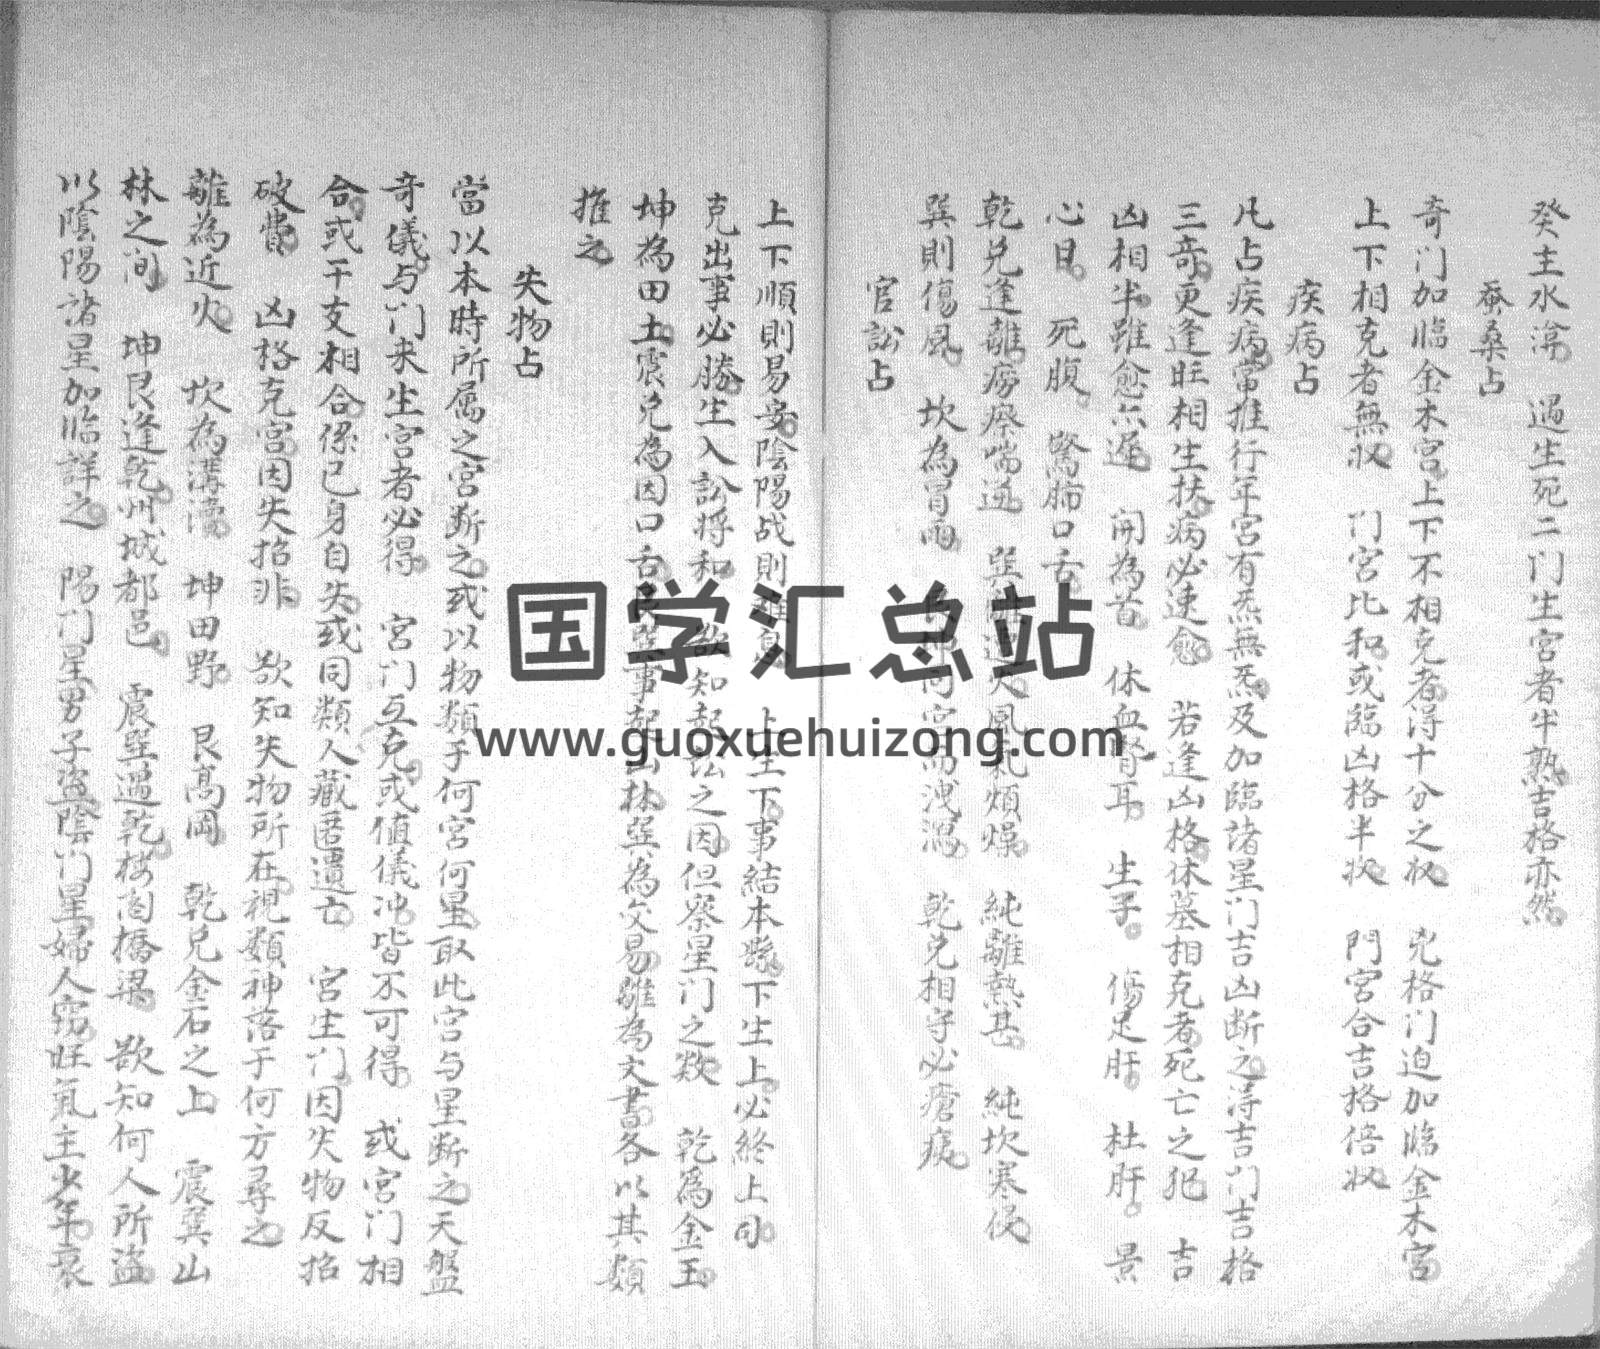 癸主水渰 遇生死二门生宮者半熟吉格亦然
蚕桑占
奇门加临金木宮上下不相克者得十分之収 凶格门迫加临金木宮
上下相克者無収 门宮比和或臨凶格半収 門宮合吉格倍収
疾病占
凡占疾病當推行年宮有炁無炁及加臨諸星门吉凶断之得吉门吉格
三奇更逢旺相生扶病必速愈 若逢凶格休墓相克者死亡之犯 吉
凶相半雖愈亦遲 開為首 休血腎耳 生手 傷足肝 杜肝 景
心目 死腹 驚肺口舌
乾兑逢離癆瘵喘逆 巽 風 煩燥 純離熱甚 純坎寒侵
巽則傷風 坎為冒雨 同宮 洩瀉 乾兑相守必瘡痍
官訟占
上下順則易安陰陽战則難息 上生下事結本縣下生上必終上司
克出事必勝生入訟将和 欲知起訟之因但察星门之数 乾為金玉
坤為田土震兑為因口舌艮 事起山林巽為交易離為文書各以其類
推之
失物占
當以本時所属之宮断之或以物類于何宮何星取此宮与星断之天盤
奇儀与门来生宮者必得 宮门互克或值儀冲皆不可得 或宮门相
合或干支相合係已身自失或同類人藏匿遺亡 宮生门因失物反招
破費 凶格克宮因失招非 欲知失物所在視類神落于何方尋之
離為近火 坎為溝瀆 坤田野 艮髙岡 乾兑金石之上 震巽山
林之间 坤艮逢乾州城都邑 震巽遇乾楼阁橋梁 欲知何人所盗
以陰陽諸星加临詳之 陽门星男子盗陰门星婦人窃旺氣主少年衰
国学汇总站
www.guoxuehuizong.com